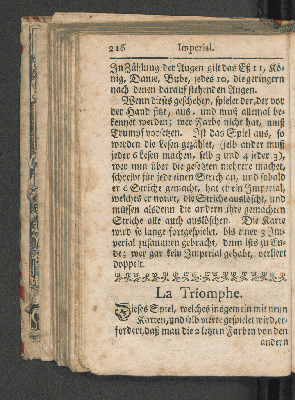 216 Imperial.
In Zählung der Augen gilt das Eß 11, Kö-
nig, Dame, Bube, jedes 10, die geringern
nach denen darauf stehenden Augen.
Wenn dieses geschehen, spielet der, der vor
der Hand sitzt, aus, und muß allemal be-
kennet werden; wer Farbe nicht hat, muß
Trumpf vorsetzen. Ist das Spiel aus, so
werden die Lesen gezählet, (selb ander muß
jeder 6 Lesen machen, selb 3 und 4 jeder 3),
wer nun über die gesetzten mehrere machet,
schreibt für jede einen Strich an, und sobald
er 4 Striche gemacht, hat er ein Imperial,
welches er notirt, die Striche auslöscht, und
müssen alsdenn die andern ihre gemachten
Striche alle auch auslöschen. Die Karte
wird so lange fortgespielet, bis einer 3 Im-
perial zusammen gebracht, denn ists zu En-
de; wer gar kein Imperial gehabt, verliert
doppelt.
La Triomphe.
Dieses Spiel, welches insgemein mit neun
Karten, und selb vierte gespielet wird, er-
fordert, daß man die 2 letzten Farben von den
andern